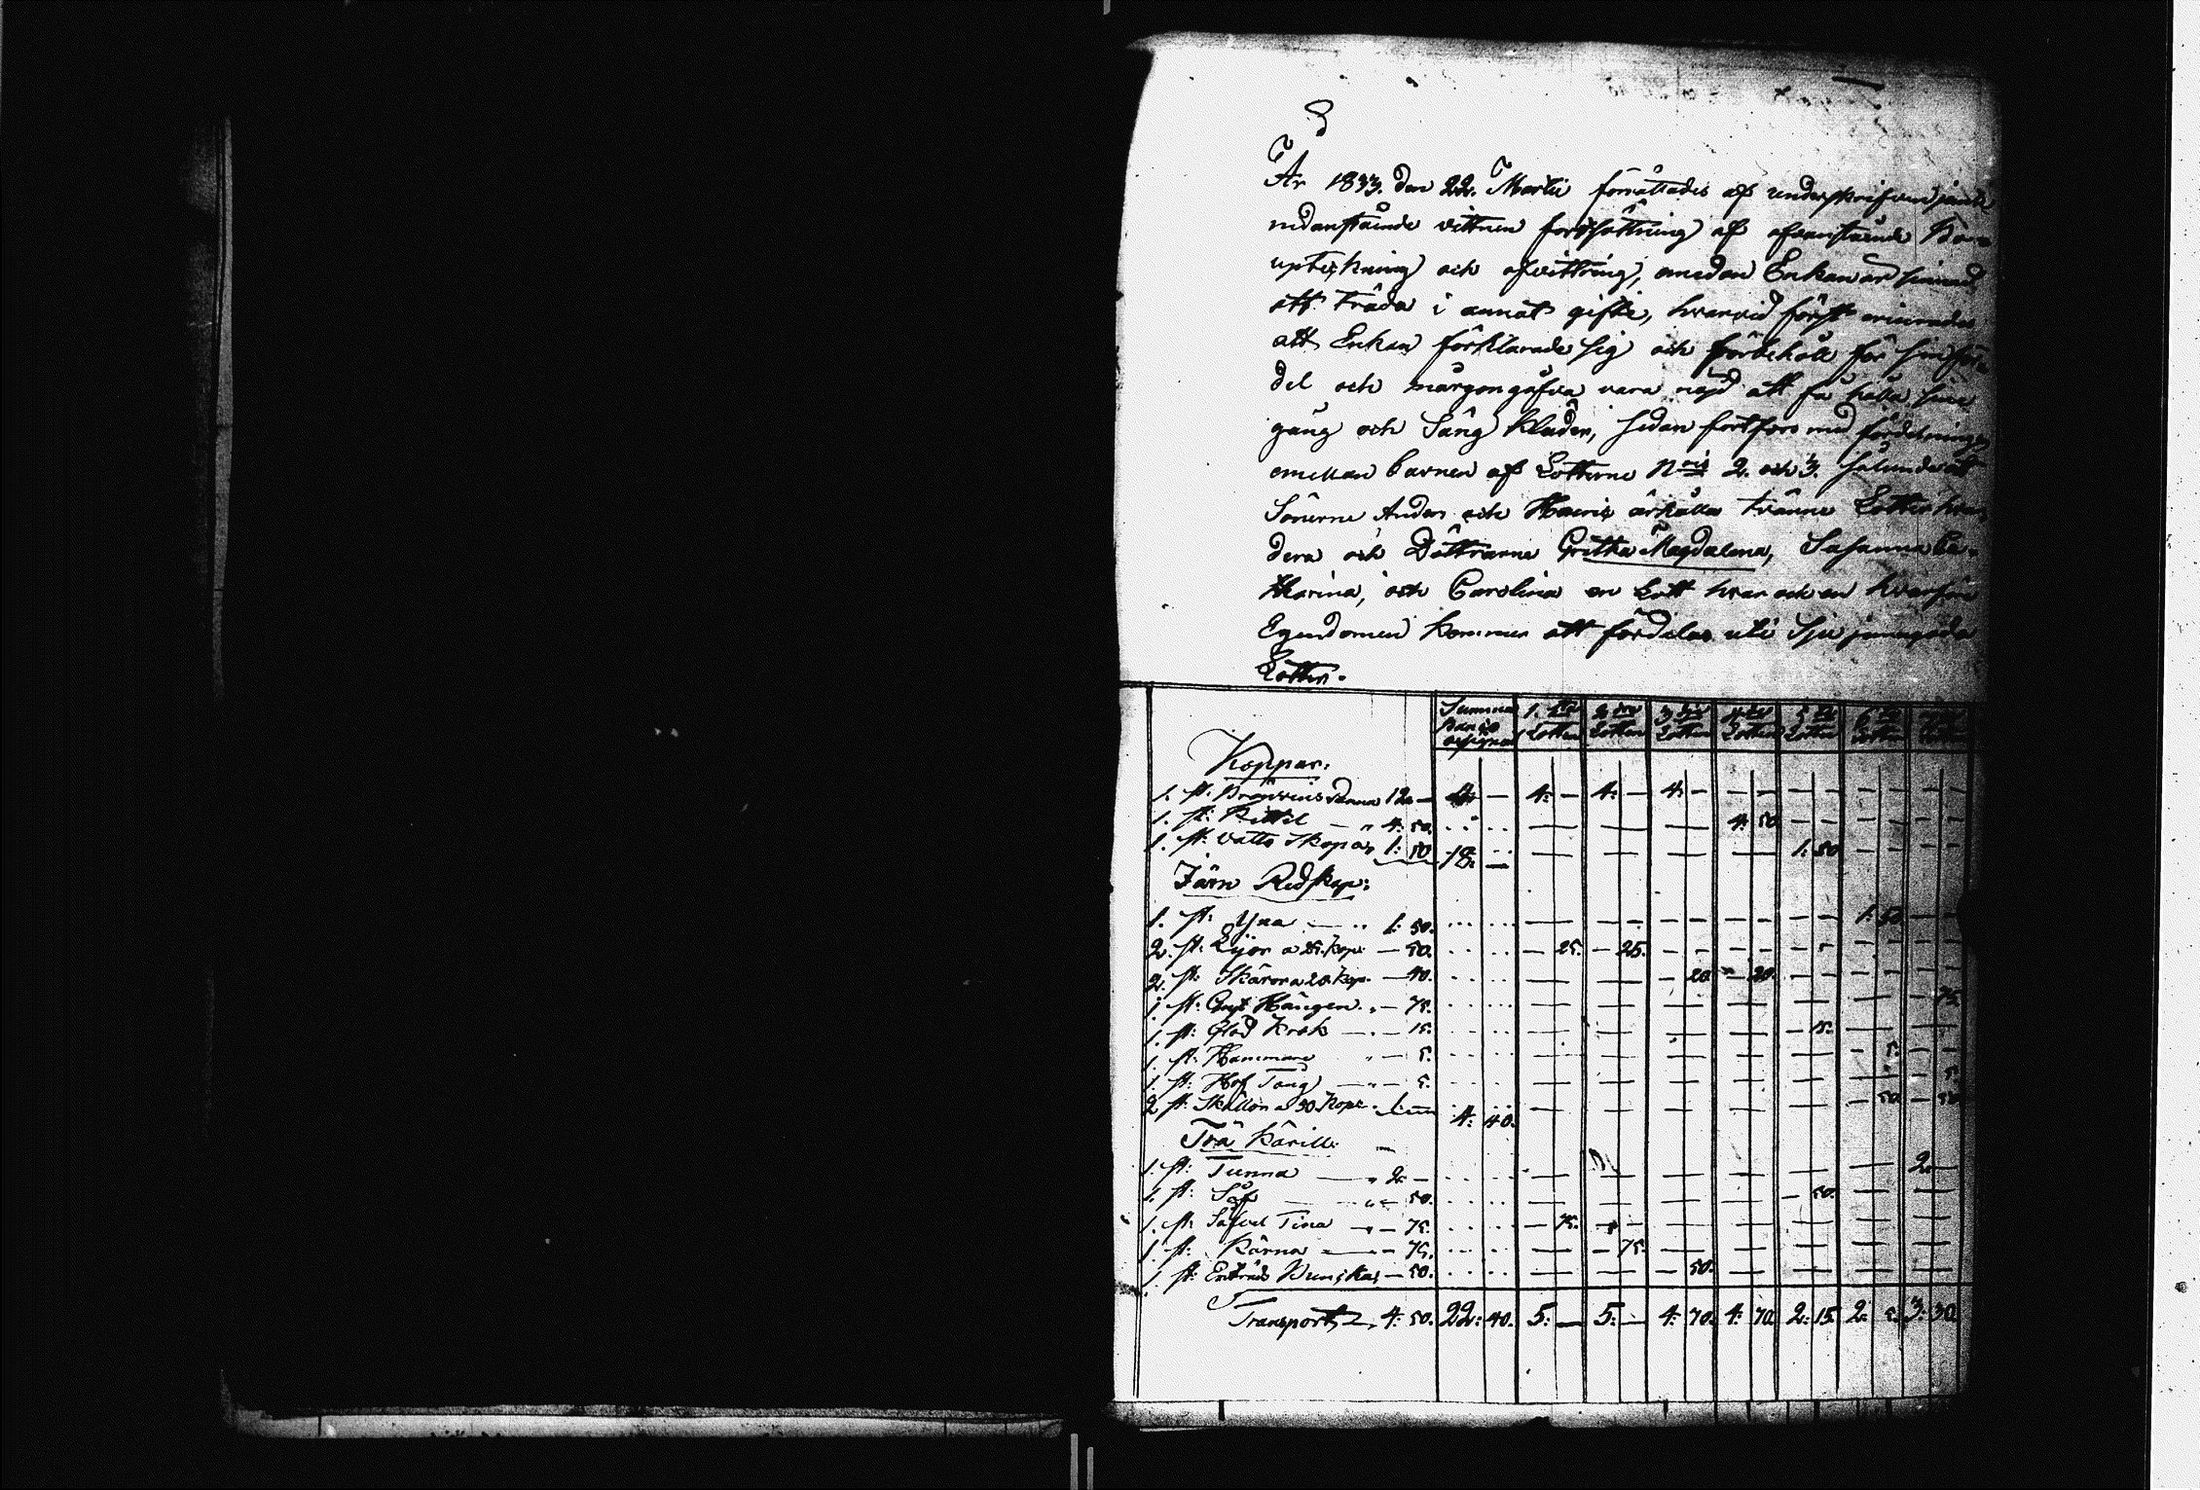 År 1833. den 22. Martii förrättades af underskrifven jemte
nedanstående vittnen fortsättning af ofvanstående Bo-
uptekning och afvittring, emedan Enkan är sinnad
att träda i annat gifte, hvarvid först erinrades
att Enkan förklarade sig och förbehöll för sin för-
del och märgongåfva vara nöjd att få hålla sine
gång och Säng kläder, sedan fortfors med fördelningen
emellan barnen af Lotterne N:ris 2. och 3. sålunda att
Sönerne Anders och Henric ärhålla tvänne Lotter hvar-
dera och Döttrarne Gretha Magdalena, Susanna Ca-
tharina, och Carolina en Lott hvar och en hvarföre
Egendomen kommer att fördelas uti Sju jemngoda
Lotter.
Summa Banco 1:sta Lotten 2:dra Lotten 3:dje Lotten 4:de Lotten 5:te Lotten 6:te Lotten
Koppar:
1. st: Bränvins Panna 12. — — 4: — 4: — 4: — — — — — — — — —
1. st: Kittel — " 4: 50. — — — 4: 50 — — — — — —
1. st: vatto Skopa, 1: 50 18: — — — — — 1: 50 — — — —
Järn Redskap:
1. st: Yxa — " 1: 50. — — — — — — — — 1: 50 — —
2. st: Lijor a 25. kop: — 50. — 25. — 25. — — — — — — — — — —
2. st: Skäror a 20. kop. — 40. — — — 20. — 20. — — — — — —
1. st: Hängen " — 75. — — — — — — — 75.
1. st: Glöd krok — — 15. — — — — — 15. — —
1. st: Hammare " — 5. — — — — — — 5. — —
1. st: Hof Tång — " — 5. — — — — — — — 5.
2 st: Skällor a 50 Kop: 1: — 4: 40. — — — — — — 50 — 50
Trä Kärill:
1. st: Tunna — " 2: — — — — — — — 2: —
1. st: Så — " — 50. — — — — — 50. — —
1. st: Tina — " — 75. — 75. — — — — — — —
1. st: Kärna — — 75. — — 75. — — — — —
1. st: Buncka, — 50. — — — 50. — — — —
Transport, 4: 50. 22: 40. 5: — 5: — 4: 70. 4: 70. 2: 15. 2: 5. 3: 30.